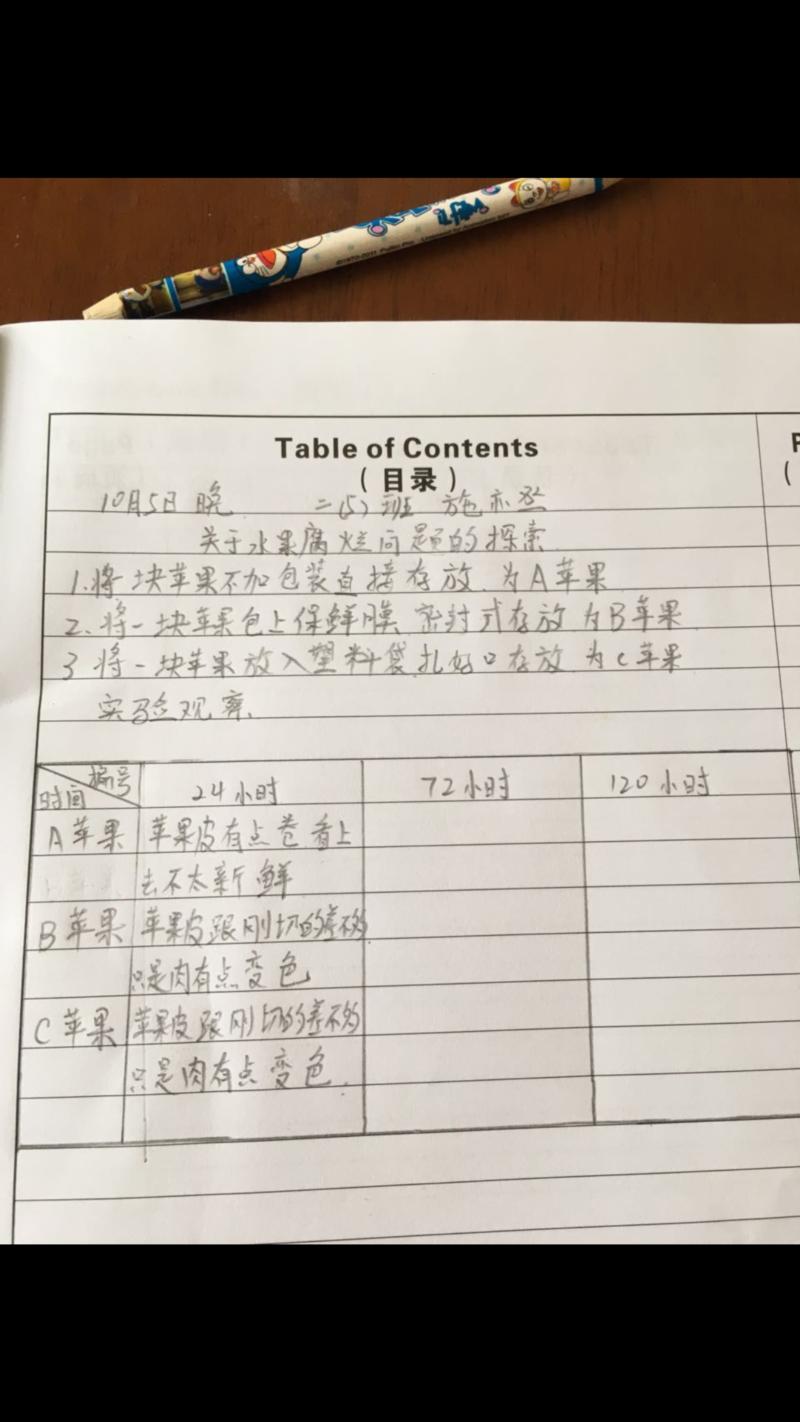 Table of Contents
P
(目录)
(
10月5日 晚 二(5)班 施亦丞
关于水果腐烂问题的探索
1.将 块苹果不加包装直接存放 为A苹果
2.将一块苹果包上保鲜膜 密封式存放 为B苹果
3 将一块苹果放入塑料袋 扎好口存放 为C苹果
实验观察
编号
时间
24小时
72小时
120小时
A苹果
苹果皮有点卷 看上
去不太新鲜
B苹果
苹果皮跟刚切的差不多
只是肉有点变色
C苹果
苹果皮跟刚切的差不多
只是肉有点变色.